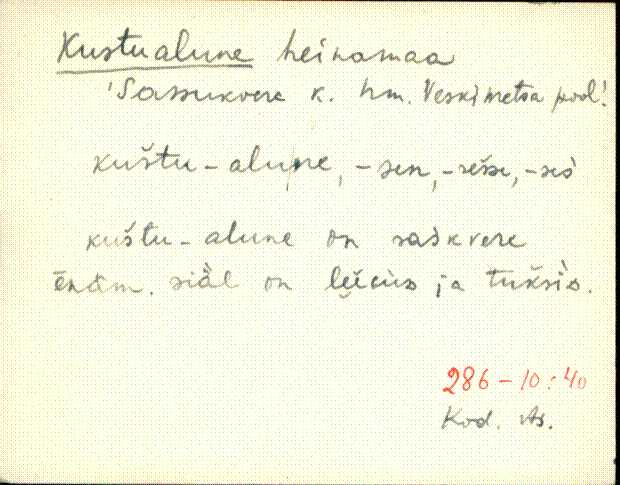 Kustualune heinamaa
'Sassukvere k. hm. Veskimetsa pool!
kuštu-alune, -sen, -sešše, -ses
kuštu-alune on saskvere
ēnäm. siäl on
ja
286-10:40
Kod. As.